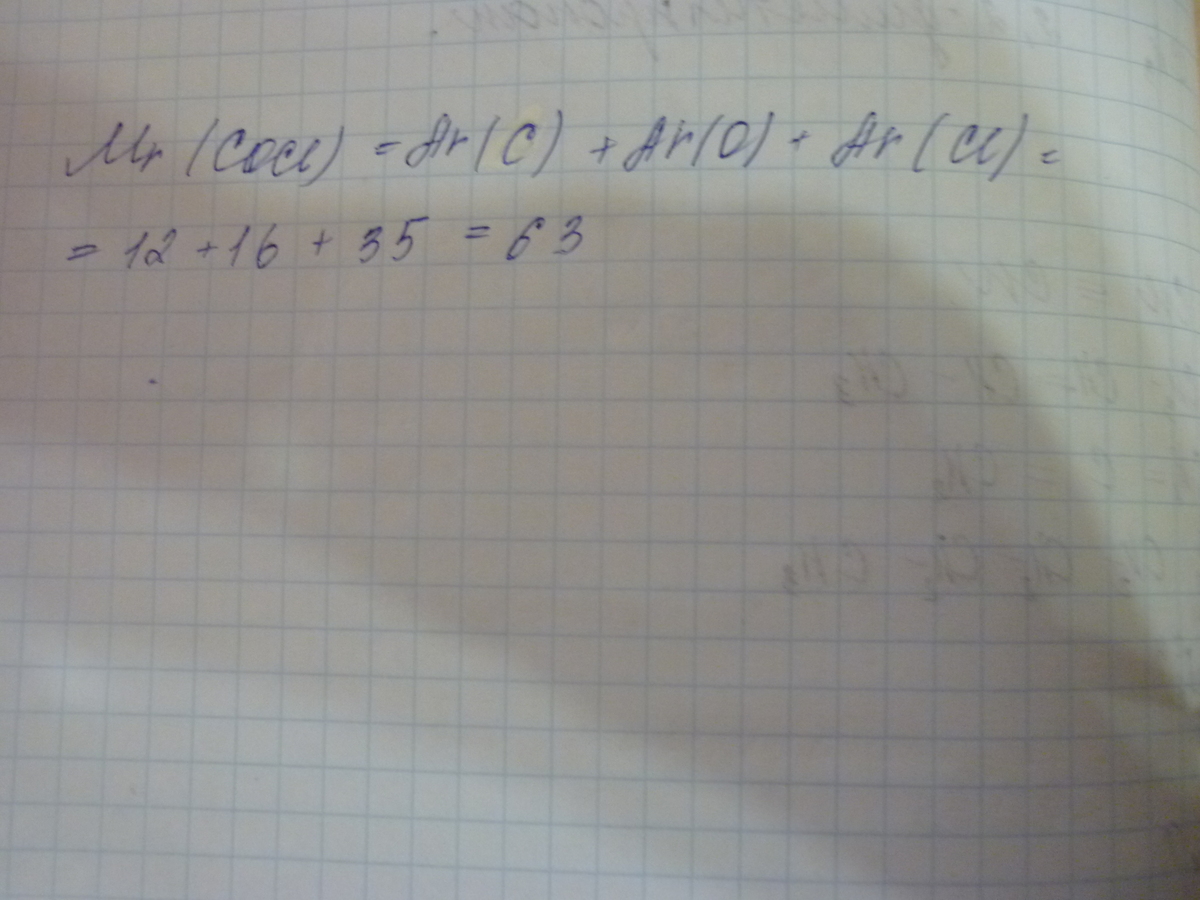 Mr (COCl) = Ar (C) + Ar (O) + Ar (Cl) =
= 12 + 16 + 35 = 63